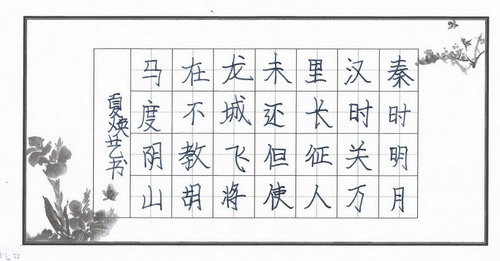 秦时明月
汉时关万
里长征人
未还但使
龙城飞将
在不教胡
马度阴山
夏焕书